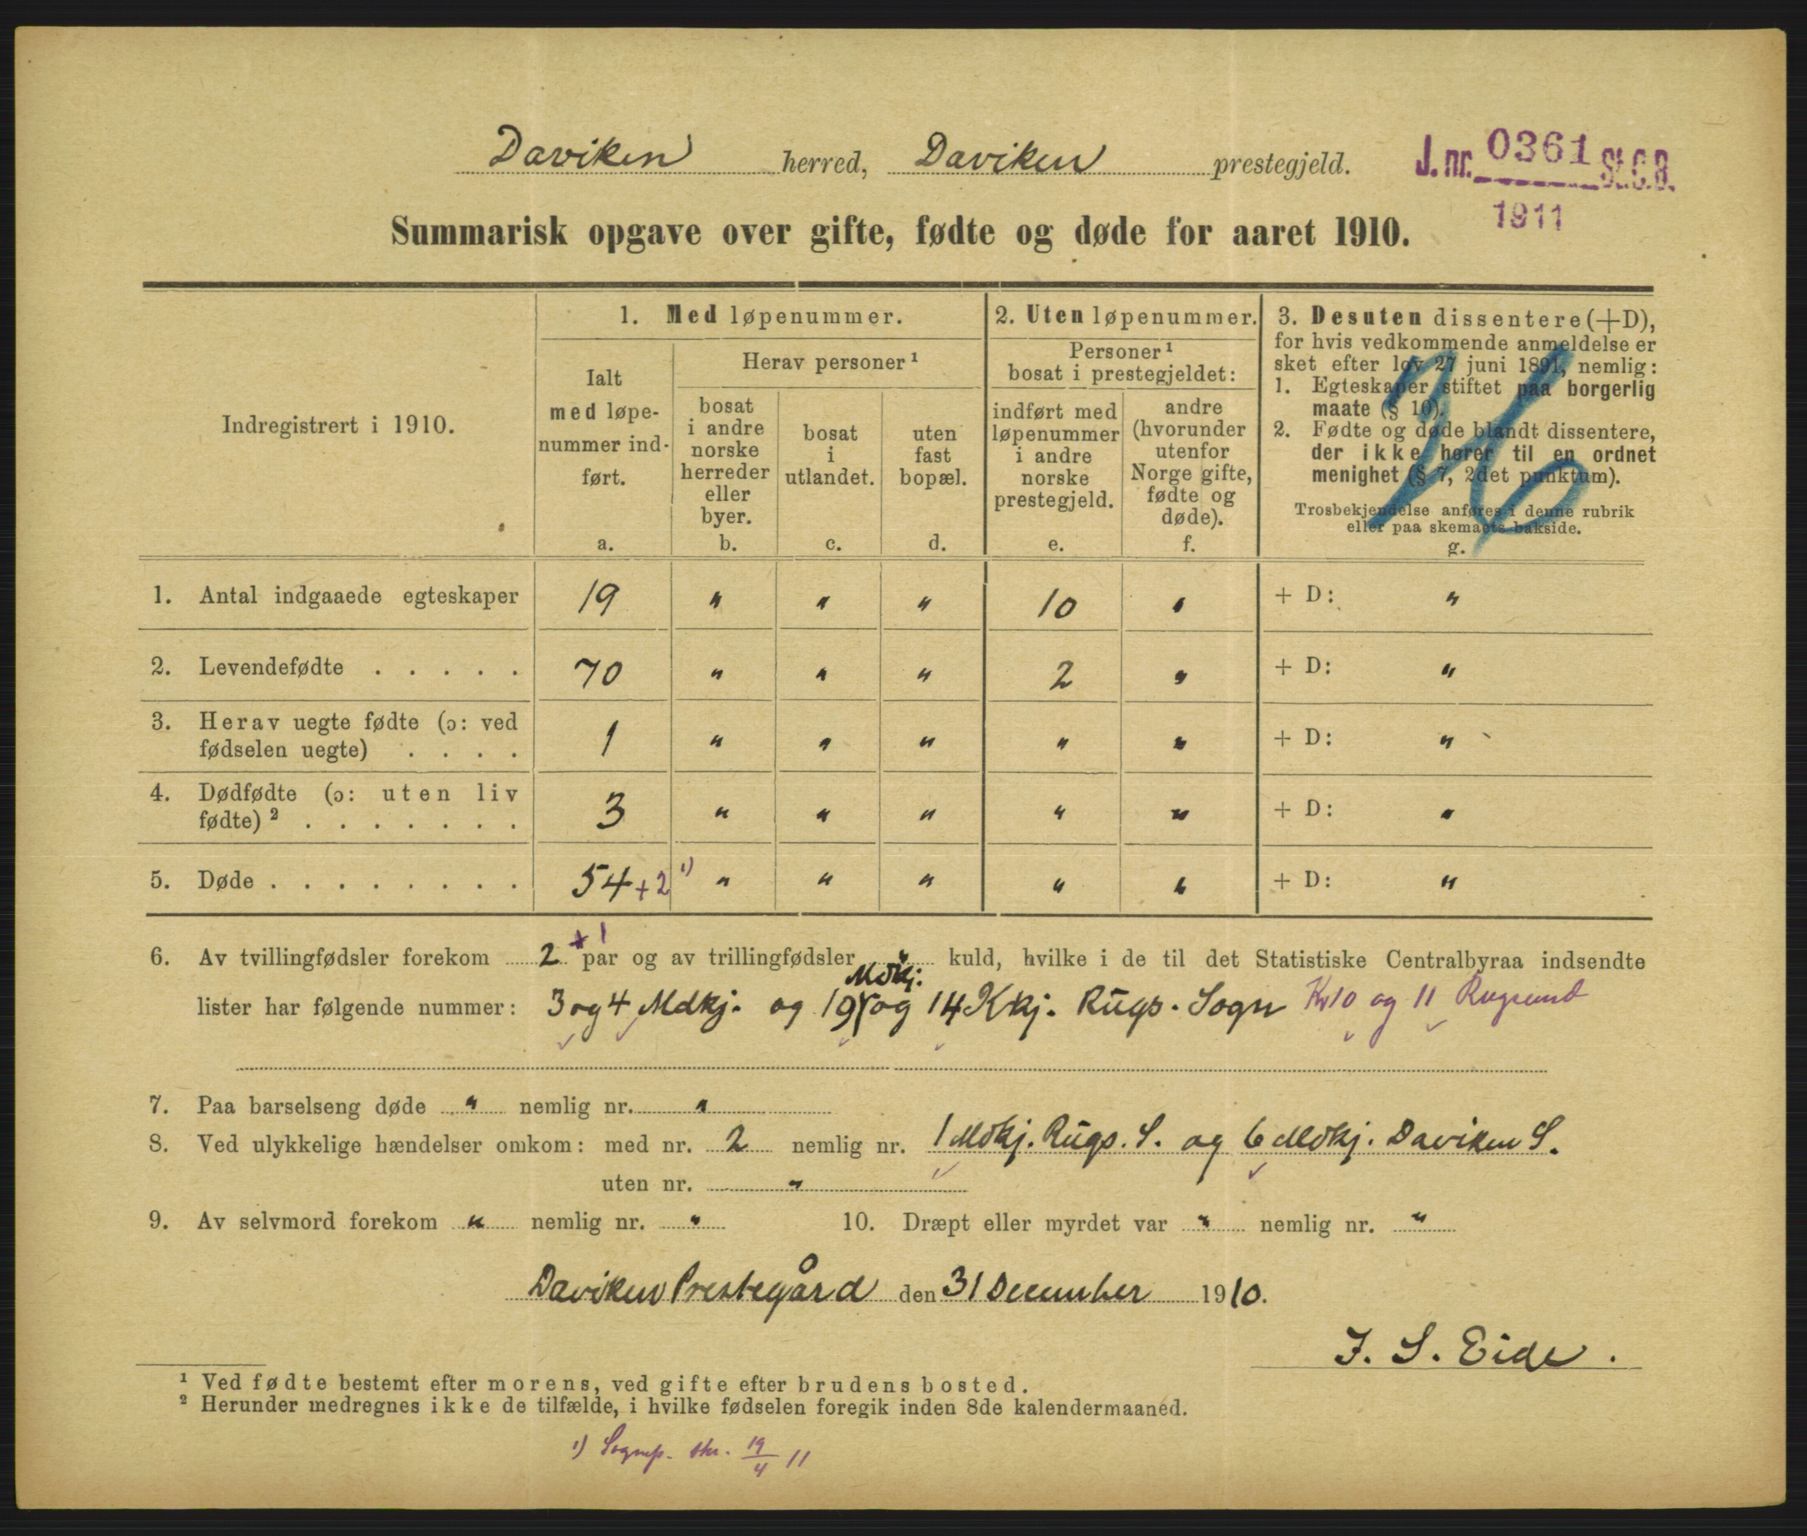 Daviken herred, Daviken prestegjeld.
J. nr. 0361 St. C. B.
1911
Summarisk opgave over gifte, fødte og døde for aaret 1910.
Indregistrert i 1910.
1. Med løpenummer.
Ialt med løpe-nummer ind-ført.
a.
Herav personer ¹
bosat i andre norske herreder eller byer.
b.
bosat i utlandet.
c.
uten fast bopæl.
d.
2. Uten løpenummer.
Personer ¹ bosat i prestegjeldet:
indført med løpenummer i andre norske prestegjeld.
e.
andre (hvorunder utenfor Norge gifte, fødte og døde).
f.
3. Desuten dissentere (+D),
for hvis vedkommende anmeldelse er
sket efter lov 27 juni 1891, nemlig:
1. Egteskaper stiftet paa borgerlig
maate (§ 10).
2. Fødte og døde blandt dissentere,
der ikke hører til en ordnet
menighet (§ 7, 2det punktum).
Trosbekjendelse anføres i denne rubrik
eller paa skemaets bakside.
g.
1. Antal indgaaede egteskaper 19 " " " 10 " + D: "
2. Levendefødte . . . . . 70 " " " 2 " + D: "
3. Herav uegte fødte (ɔ: ved
fødselen uegte) . . . . 1 " " " " " + D: "
4. Dødfødte (ɔ: uten liv
fødte) ² . . . . . . . 3 " " " " " + D: "
5. Døde . . . . . . . . 54 + 2 ¹) " " " " " + D: "
6. Av tvillingfødsler forekom 2 + 1 par og av trillingfødsler " kuld, hvilke i de til det Statistiske Centralbyraa indsendte
lister har følgende nummer: 3 og 4 Mdkj. og 19 Mdkj. og 14 Kkj. Rugs. Sogn Kv 10 og 11 Rugsund
7. Paa barselseng døde " nemlig nr. "
8. Ved ulykkelige hændelser omkom: med nr. 2 nemlig nr. 1 Mdkj. Rugs. S. og 6 Mdkj. Daviken S.
uten nr. "
9. Av selvmord forekom " nemlig nr. " 10. Dræpt eller myrdet var " nemlig nr. "
Daviken Prestegård den 31 December 1910.
J. S. Eide.
¹ Ved fødte bestemt efter morens, ved gifte efter brudens bosted.
² Herunder medregnes ikke de tilfælde, i hvilke fødselen foregik inden 8de kalendermaaned.
¹) Sognep. skr. 19/4 11